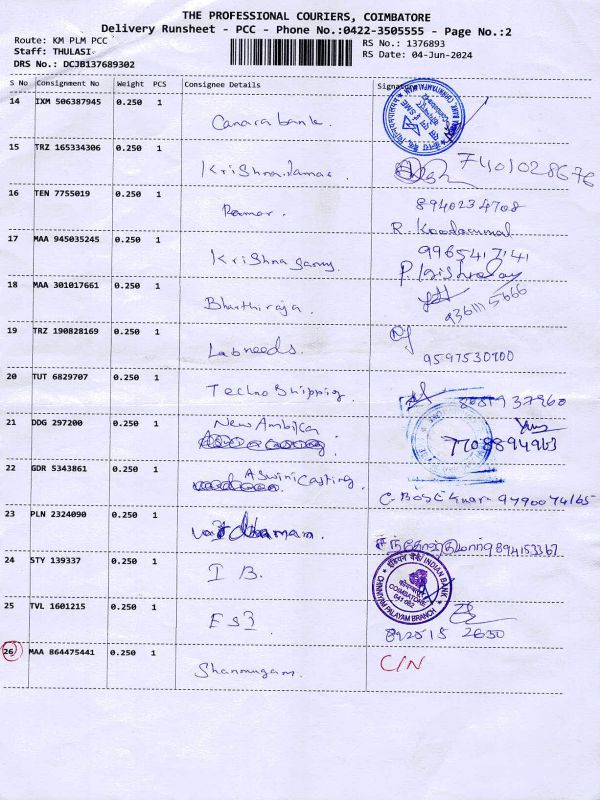 THE PROFESSIONAL COURIERS, COIMBATORE
Delivery Runsheet - PCC - Phone No.:0422-3505555 - Page No.:2
Route: KM PLM PCC
RS No.: 1376893
Staff: THULASI
RS Date: 04-Jun-2024
DRS No.: DCJB137689302
S No Consignment No Weight PCS Consignee Details Signature
14 IXM 506387945 0.250 1 Canara bank.
15 TRZ 165334306 0.250 1 7401028676
16 TEN 7755019 0.250 1 8940234708
R.
17 MAA 945035245 0.250 1 Krishnasamy 9965417141
18 MAA 301017661 0.250 1 Bharthiraja 9361115666
19 TRZ 190828169 0.250 1 Labneeds. 9597530100
20 TUT 6829707 0.250 1 Techno Shipping.
21 DDG 297200 0.250 1 New Ambika 7708894963
22 GDR 5343861 0.250 1 Aswini Casting C. 9790074165
23 PLN 2324090 0.250 1 9894153367
24 STY 139337 0.250 1 I B. INDIAN BANK COIMBATORE 641 062 CHINNIYAM PALAYAM BRANCH
25 TVL 1601215 0.250 1 ESI 892515 2650
26 MAA 864475441 0.250 1 Shanmugam. C/N